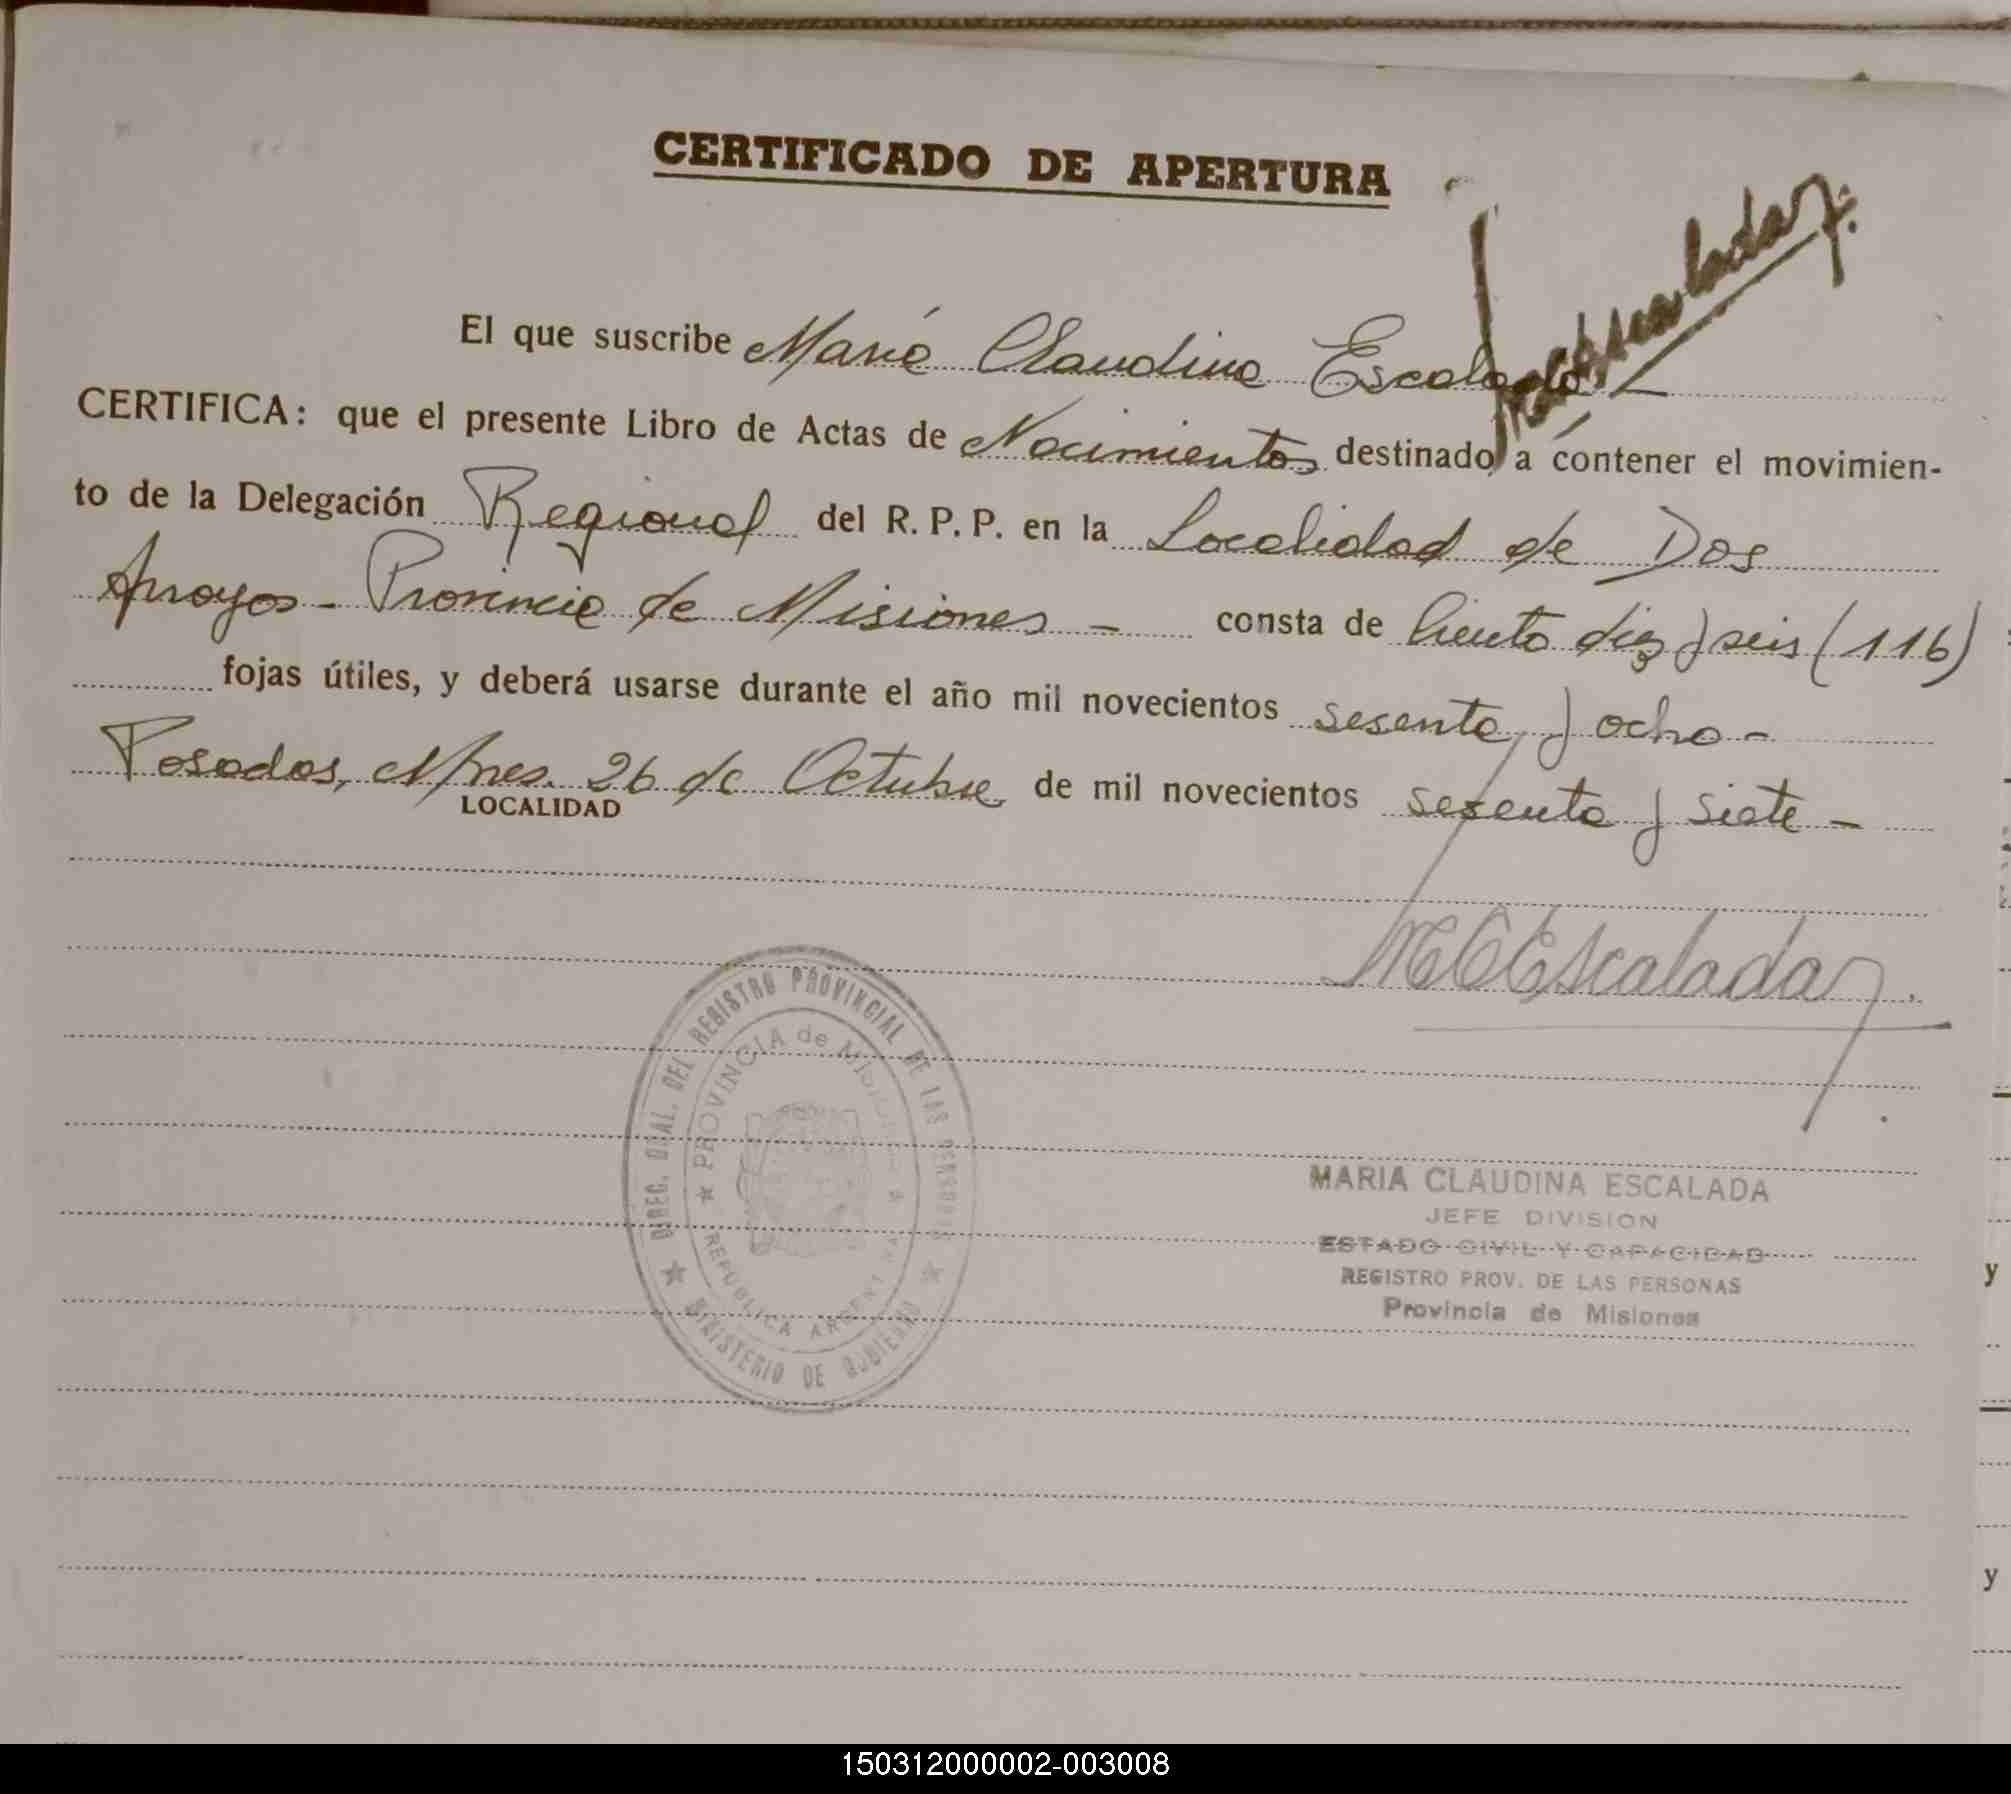 CERTIFICADO DE APERTURA
El que suscribe María Claudina Escalada
CERTIFICA: que el presente Libro de Actas de Nacimientos destinado a contener el movimien-
to de la Delegación Regional del R. P. P. en la Localidad de Dos
Arroyos - Provincia de Misiones - consta de Ciento diez y seis (116)
fojas útiles, y deberá usarse durante el año mil novecientos sesenta y ocho -
Posadas, Mnes. 26 de Octubre de mil novecientos sesenta y siete -
LOCALIDAD
MCEscalada
DIREC. GRAL. DEL REGISTRO PROVINCIAL DE LAS PERSONAS
PROVINCIA de Misiones
REPUBLICA ARGENTINA
MINISTERIO DE GOBIERNO
MARIA CLAUDINA ESCALADA
JEFE DIVISION
ESTADO CIVIL Y CAPACIDAD
REGISTRO PROV. DE LAS PERSONAS
Provincia de Misiones
y
y
150312000002-003008